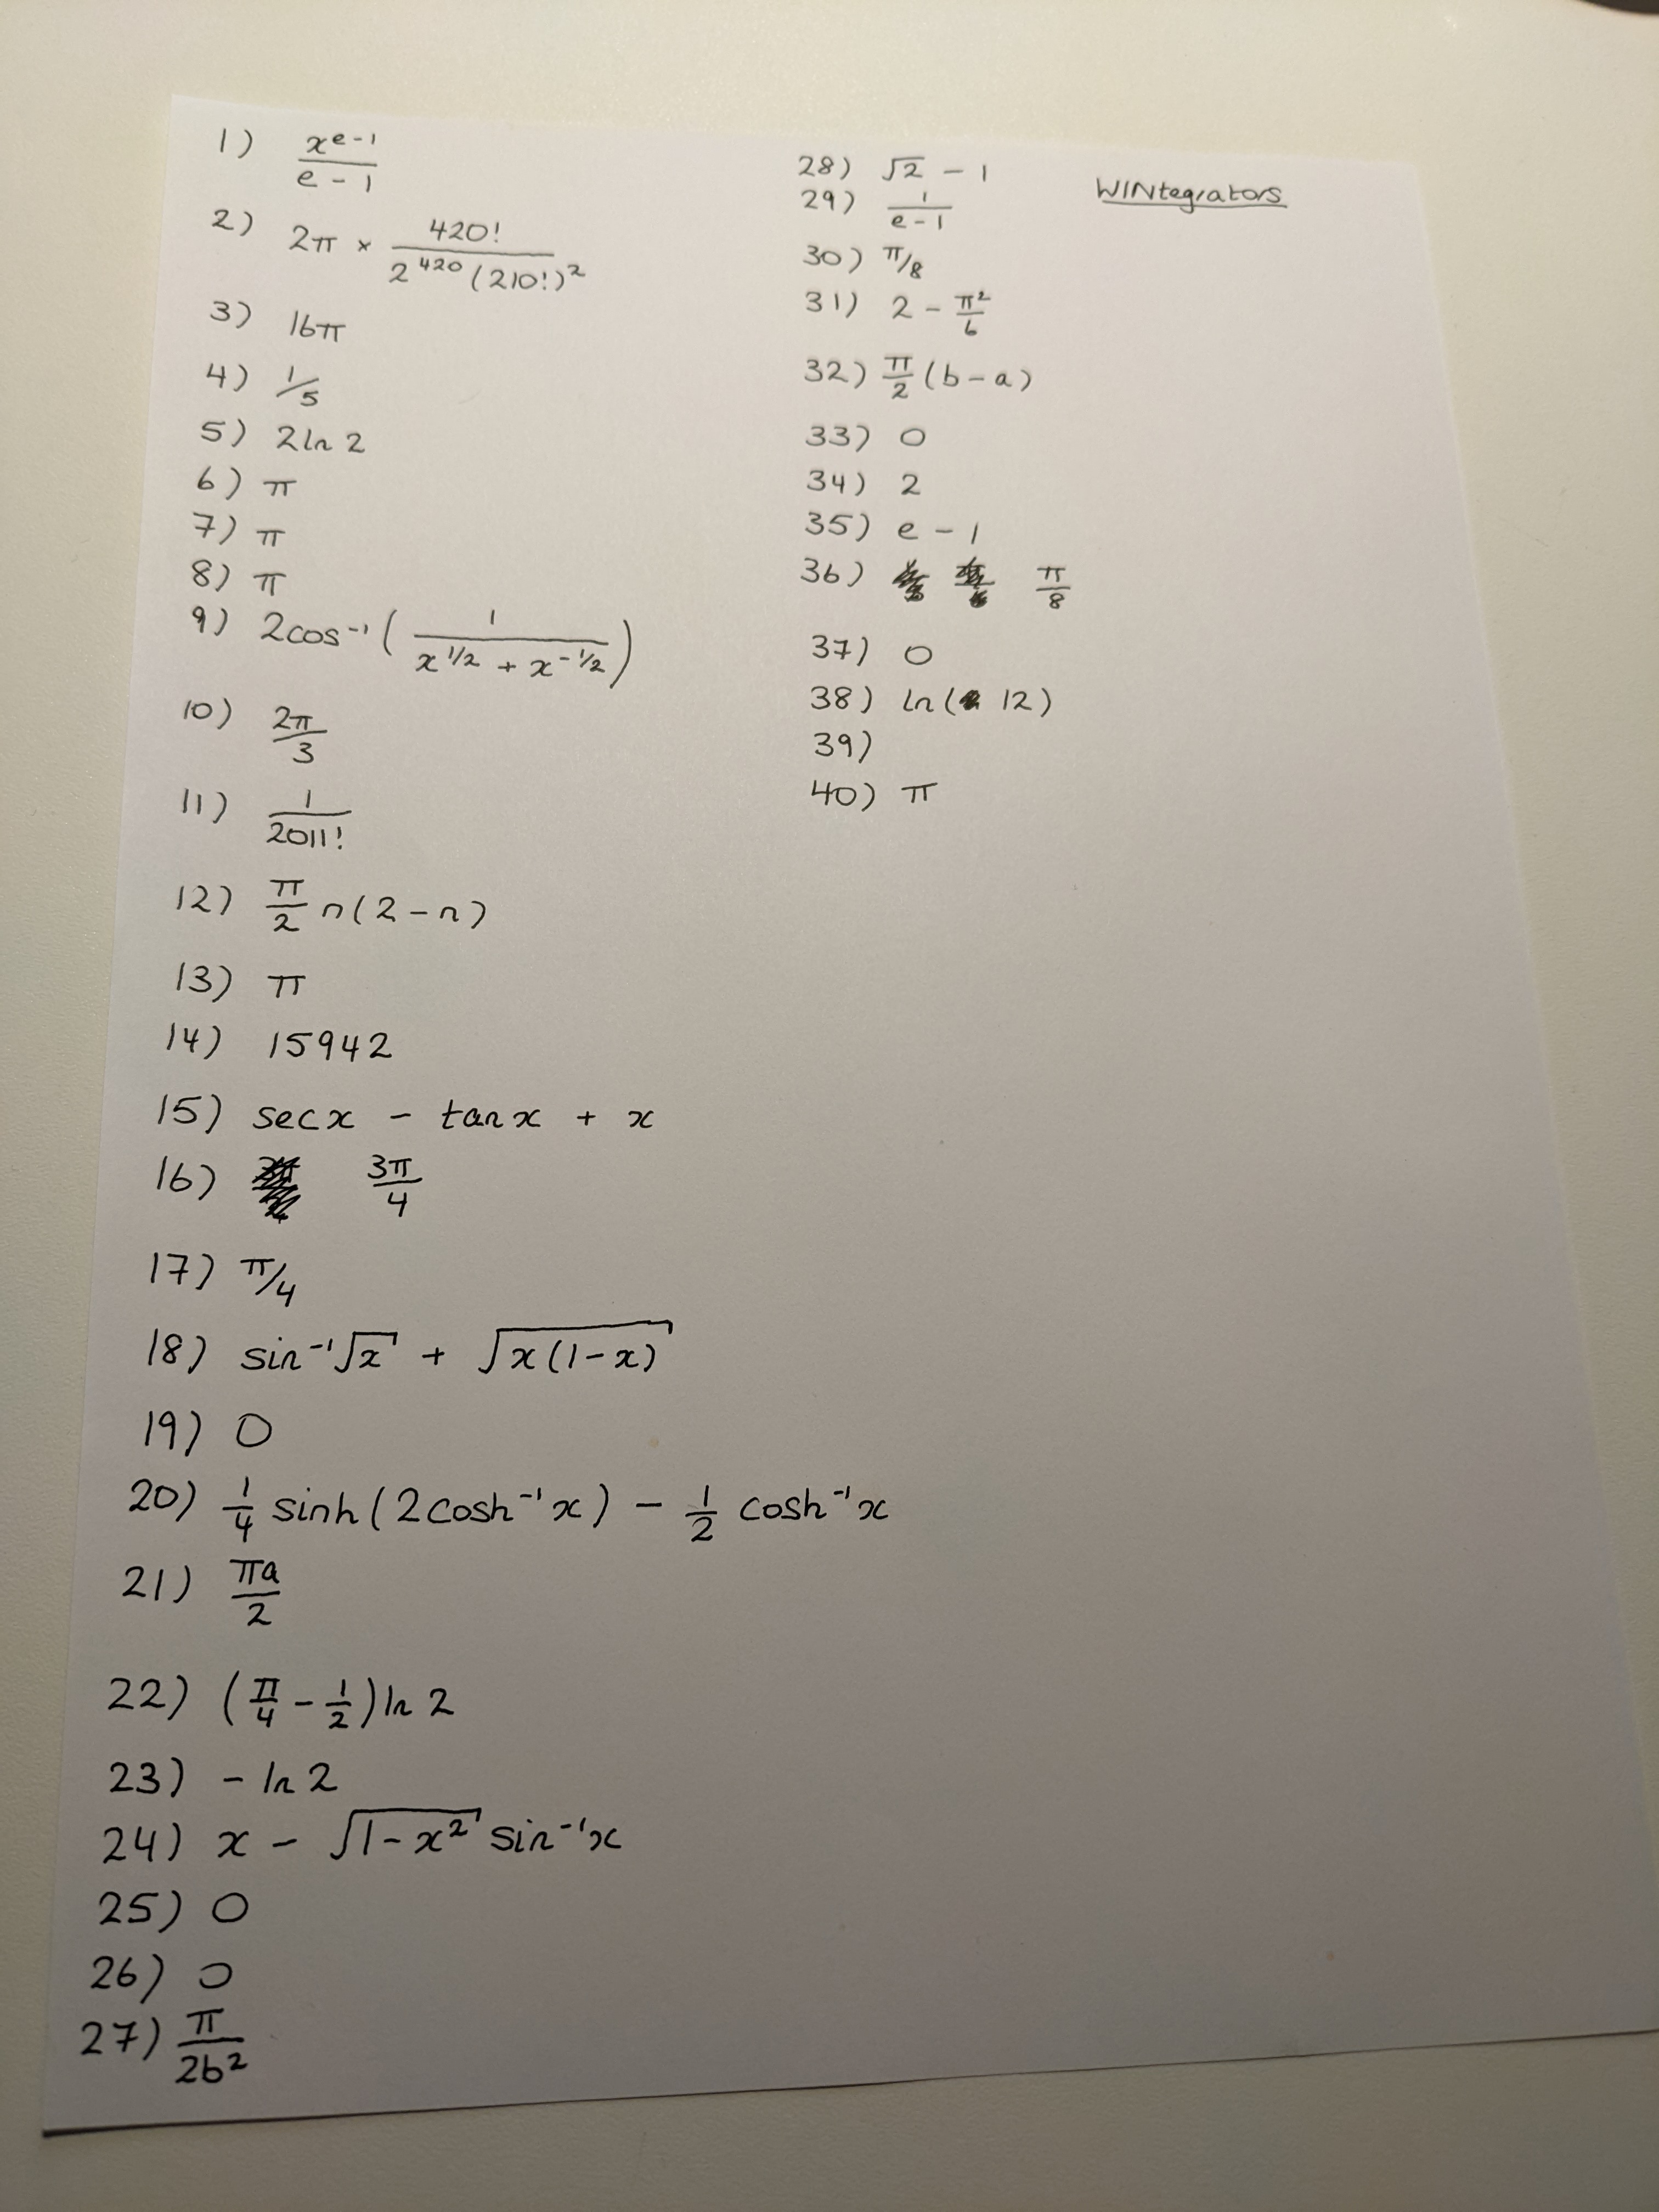 1) x^(e-1) / (e-1)
2) 2π × 420! / (2^420 (210!)^2)
3) 16π
4) 1/5
5) 2ln 2
6) π
7) π
8) π
9) 2cos⁻¹( 1 / (x^(1/2) + x^(-1/2)) )
10) 2π/3
11) 1/2011!
12) π/2 n(2-n)
13) π
14) 15942
15) sec x - tan x + x
16) 3π/4
17) π/4
18) sin⁻¹√x + √(x(1-x))
19) 0
20) 1/4 sinh(2cosh⁻¹x) - 1/2 cosh⁻¹x
21) πa/2
22) (π/4 - 1/2) ln 2
23) - ln 2
24) x - √(1-x²) sin⁻¹x
25) 0
26) 0
27) π/2b²
28) √2 - 1
29) 1/(e-1)
30) π/8
31) 2 - π²/6
32) π/2 (b-a)
33) 0
34) 2
35) e - 1
36) π/8
37) 0
38) ln(12)
39)
40) π
WINtegrators